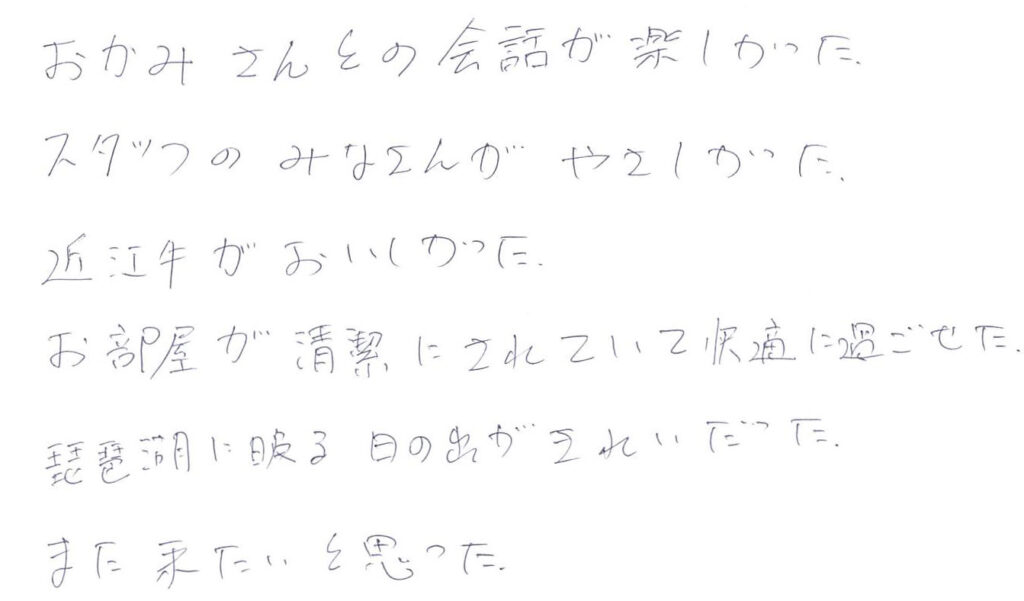 おかみさんとの会話が楽しかった.
スタッフのみなさんがやさしかった.
近江牛がおいしかった.
お部屋が清潔にされていて快適に過ごせた.
琵琶湖に映る日の出がきれいだった.
また来たいと思った.